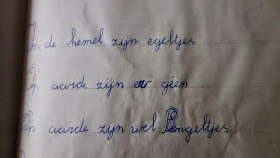 In de hemel zijn egeltjes
Op aarde zijn er géén
Op aarde zijn wel Bengeltjes